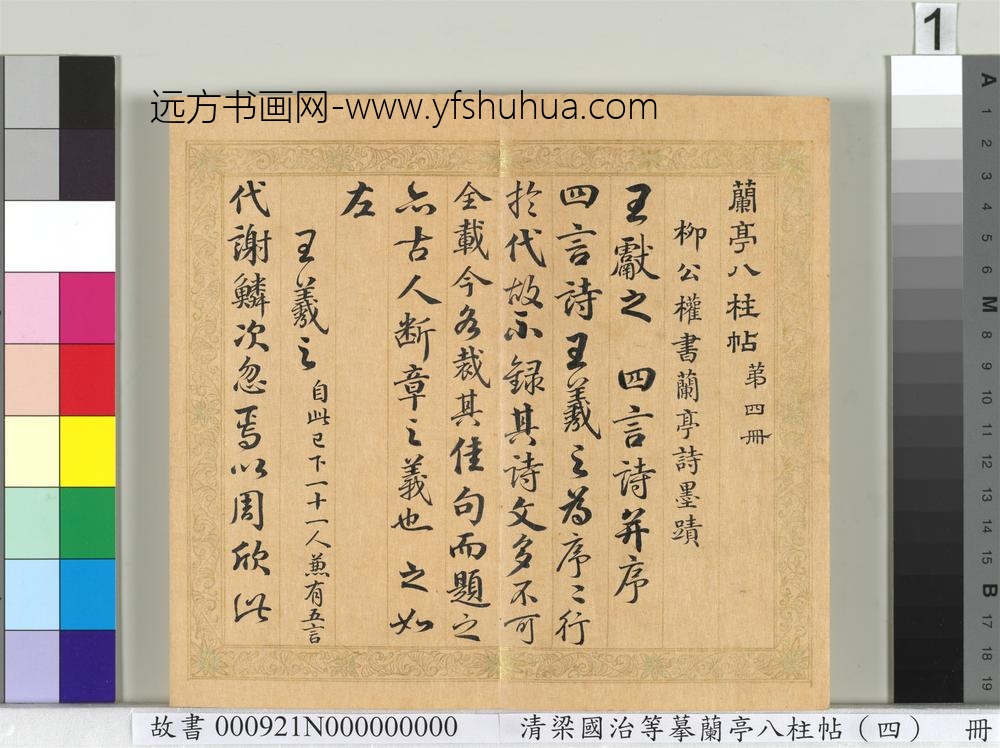 1
远方书画网-www.yfshuhua.com
蘭亭八柱帖 第四冊
柳公權書蘭亭詩墨蹟
王獻之 四言詩并序
四言詩王羲之為序〻行
扵代故不録其詩文多不可
全載今各裁其佳句而題之
亦古人断章之義也 之如
左
王羲之 自此已下一十一人兼有五言
代謝鱗次忽焉以周欣此
A
1
2
3
4
5
M
8
9
10
11
12
13
14
15
B
17
18
19
故書 000921N000000000 清梁國治等摹蘭亭八柱帖（四） 冊